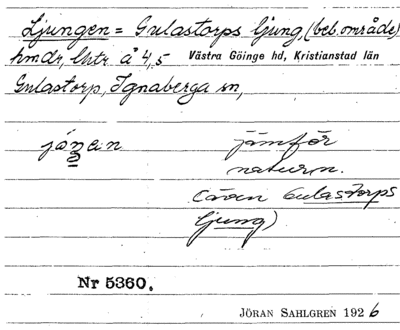 Ljungen = Gulastorps ljung, (beb.område)
hmdr, lhtr. å 4,5 Västra Göinge hd, Kristianstad län
Gulastorp, Ignaberga sn,
jämför
naturn.
(även Gulastorps
ljung)
Nr 5360.
JÖRAN SAHLGREN 1926